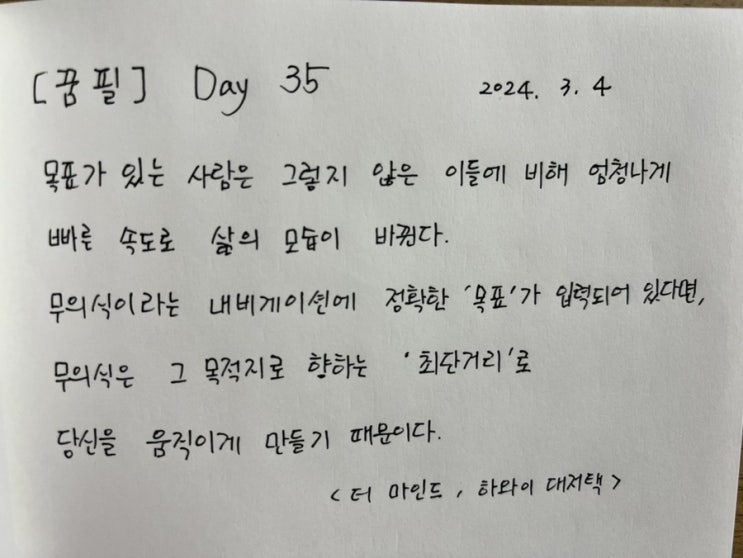 [꿈필] Day 35 2024. 3. 4
목표가 있는 사람은 그렇지 않은 이들에 비해 엄청나게
빠른 속도로 삶의 모습이 바뀐다.
무의식이라는 내비게이션에 정확한 '목표'가 입력되어 있다면,
무의식은 그 목적지로 향하는 '최단거리'로
당신을 움직이게 만들기 때문이다.
<더 마인드, 하와이 대저택>